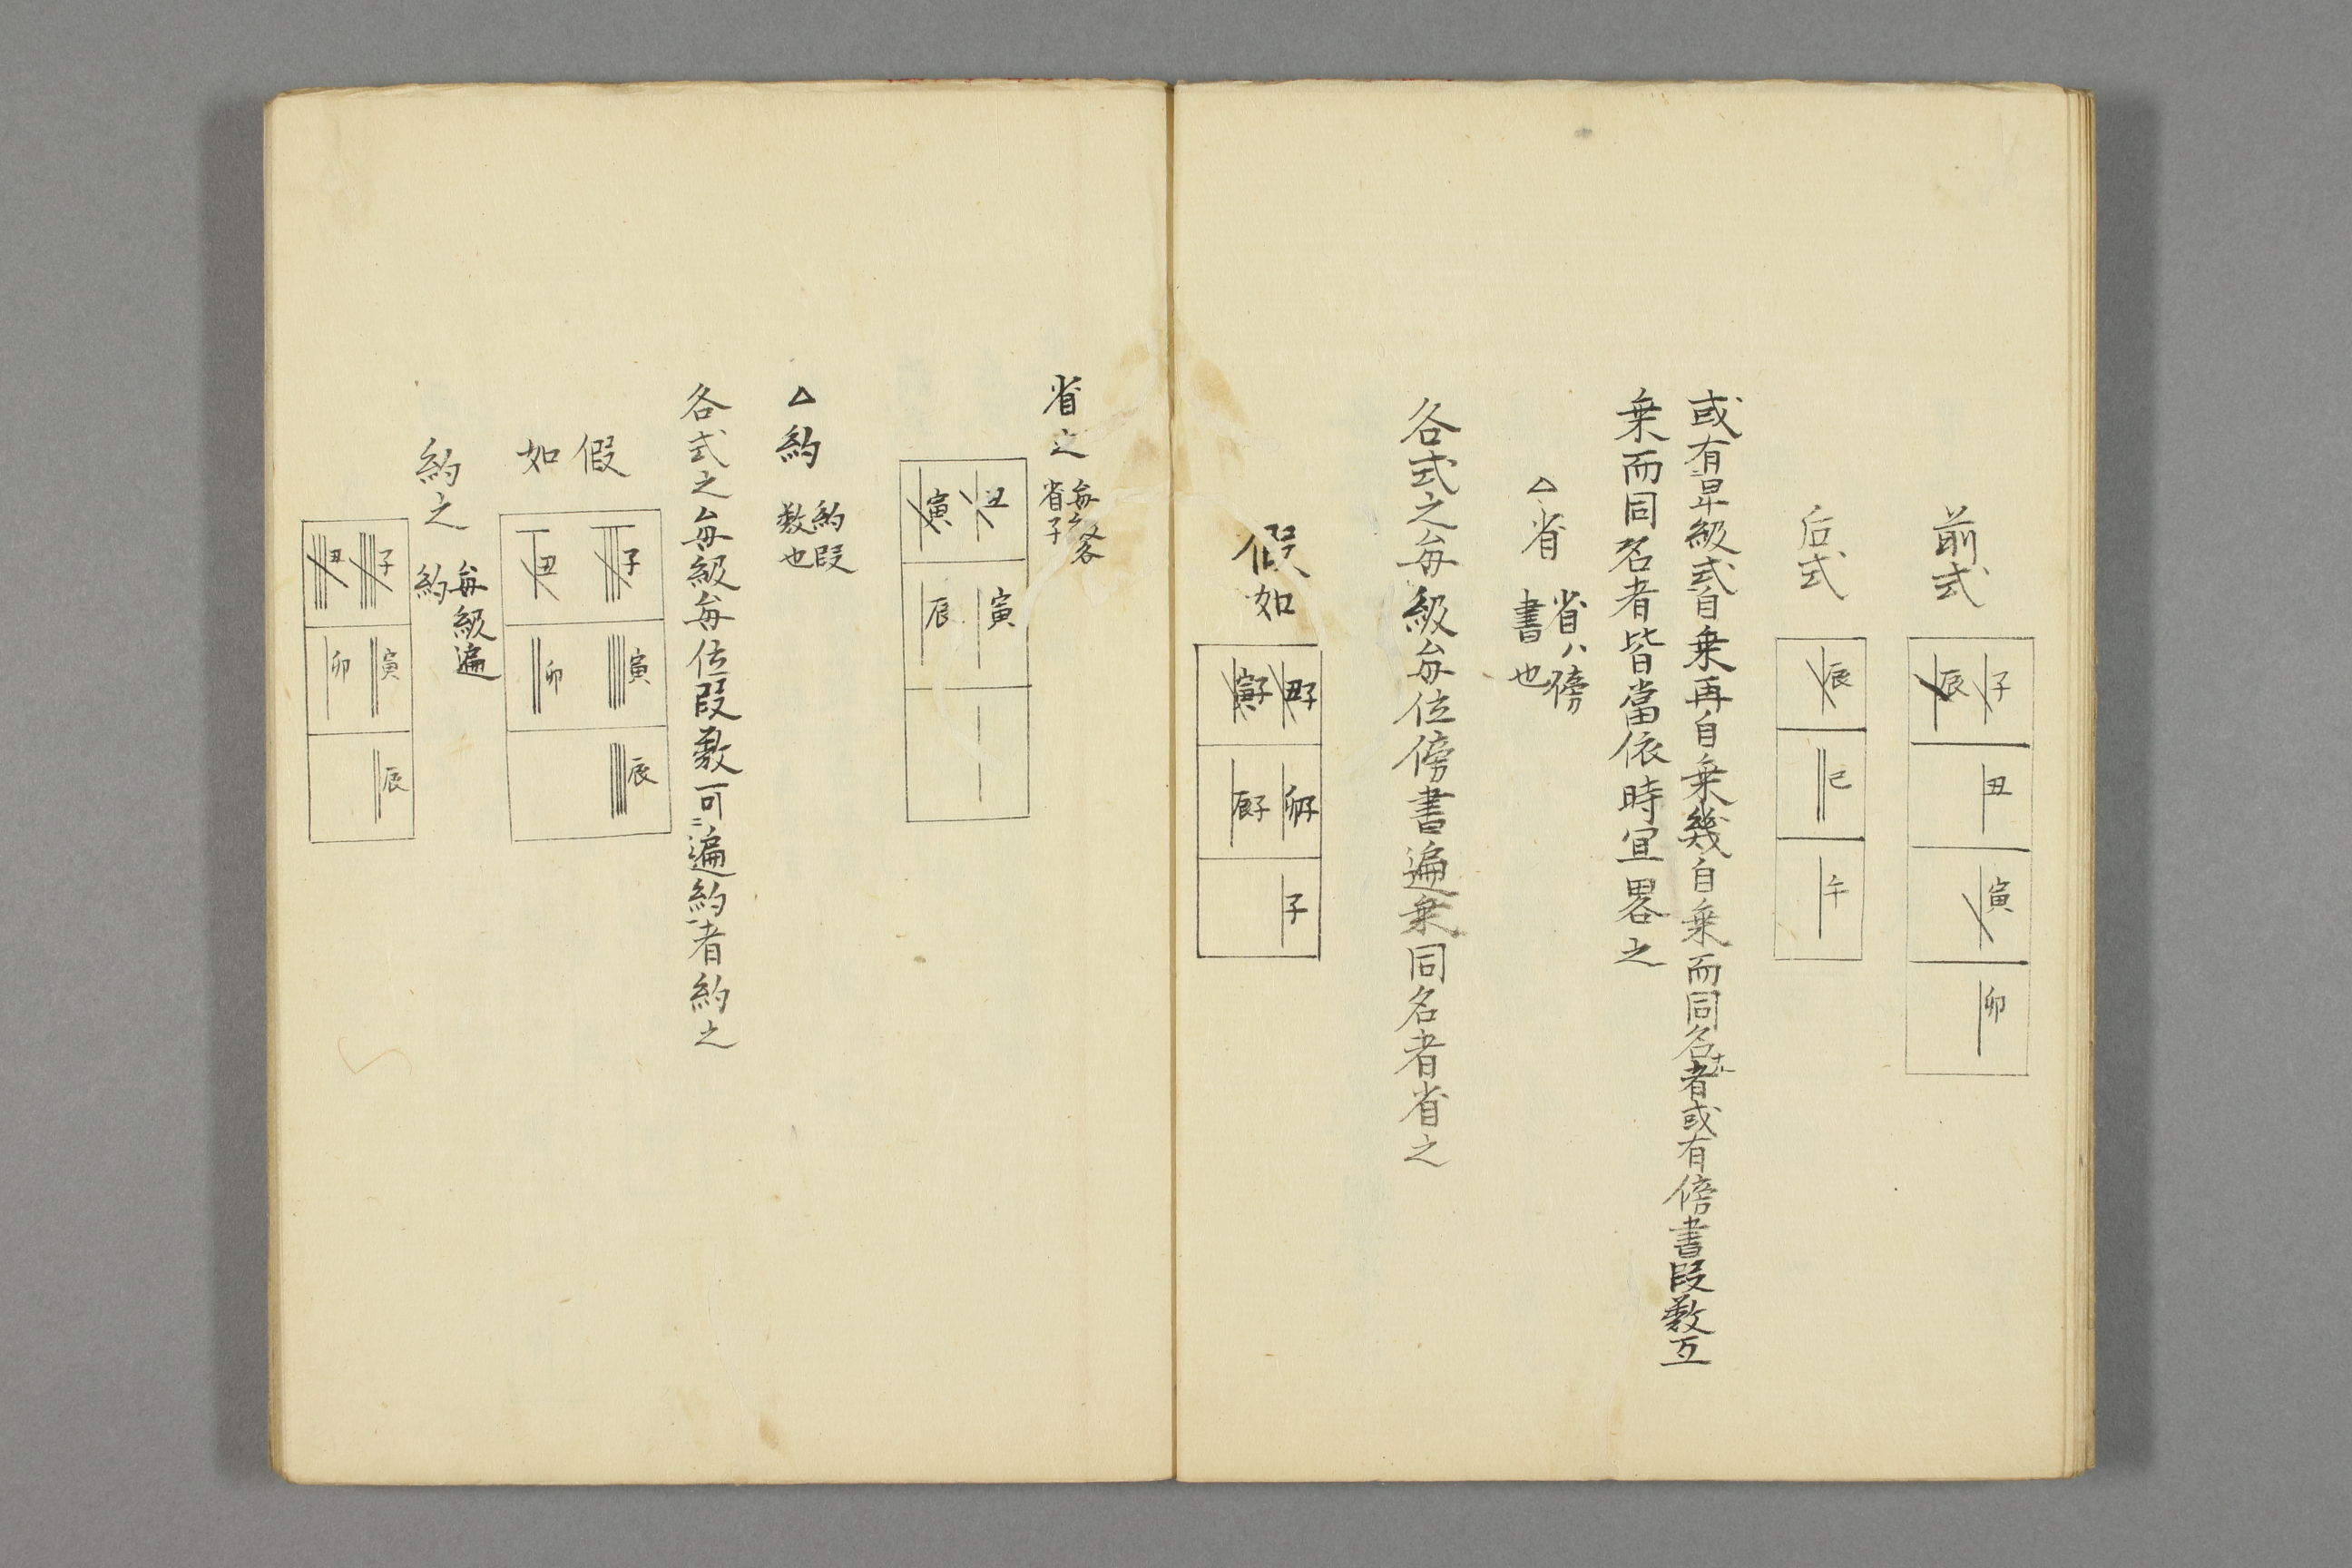 前式
子
辰
丑
寅
卯
后式
辰
巳
午
或有早級式自乗再自乗幾自乗而同名者或有傍書段数互
乗而同名者皆當依時宜畧之
△省
省ハ傍
書也
各式之毎級毎位傍書遍乗同名者省之
假如
丑子
寅子
卯子
辰子
子
省之
毎畧
省子
丑
寅
寅
辰
△約
約段
数也
各式之毎級毎位段数可遍約者約之
假
如
子
丑
寅
卯
辰
約之
毎級遍
約
子
丑
寅
卯
辰